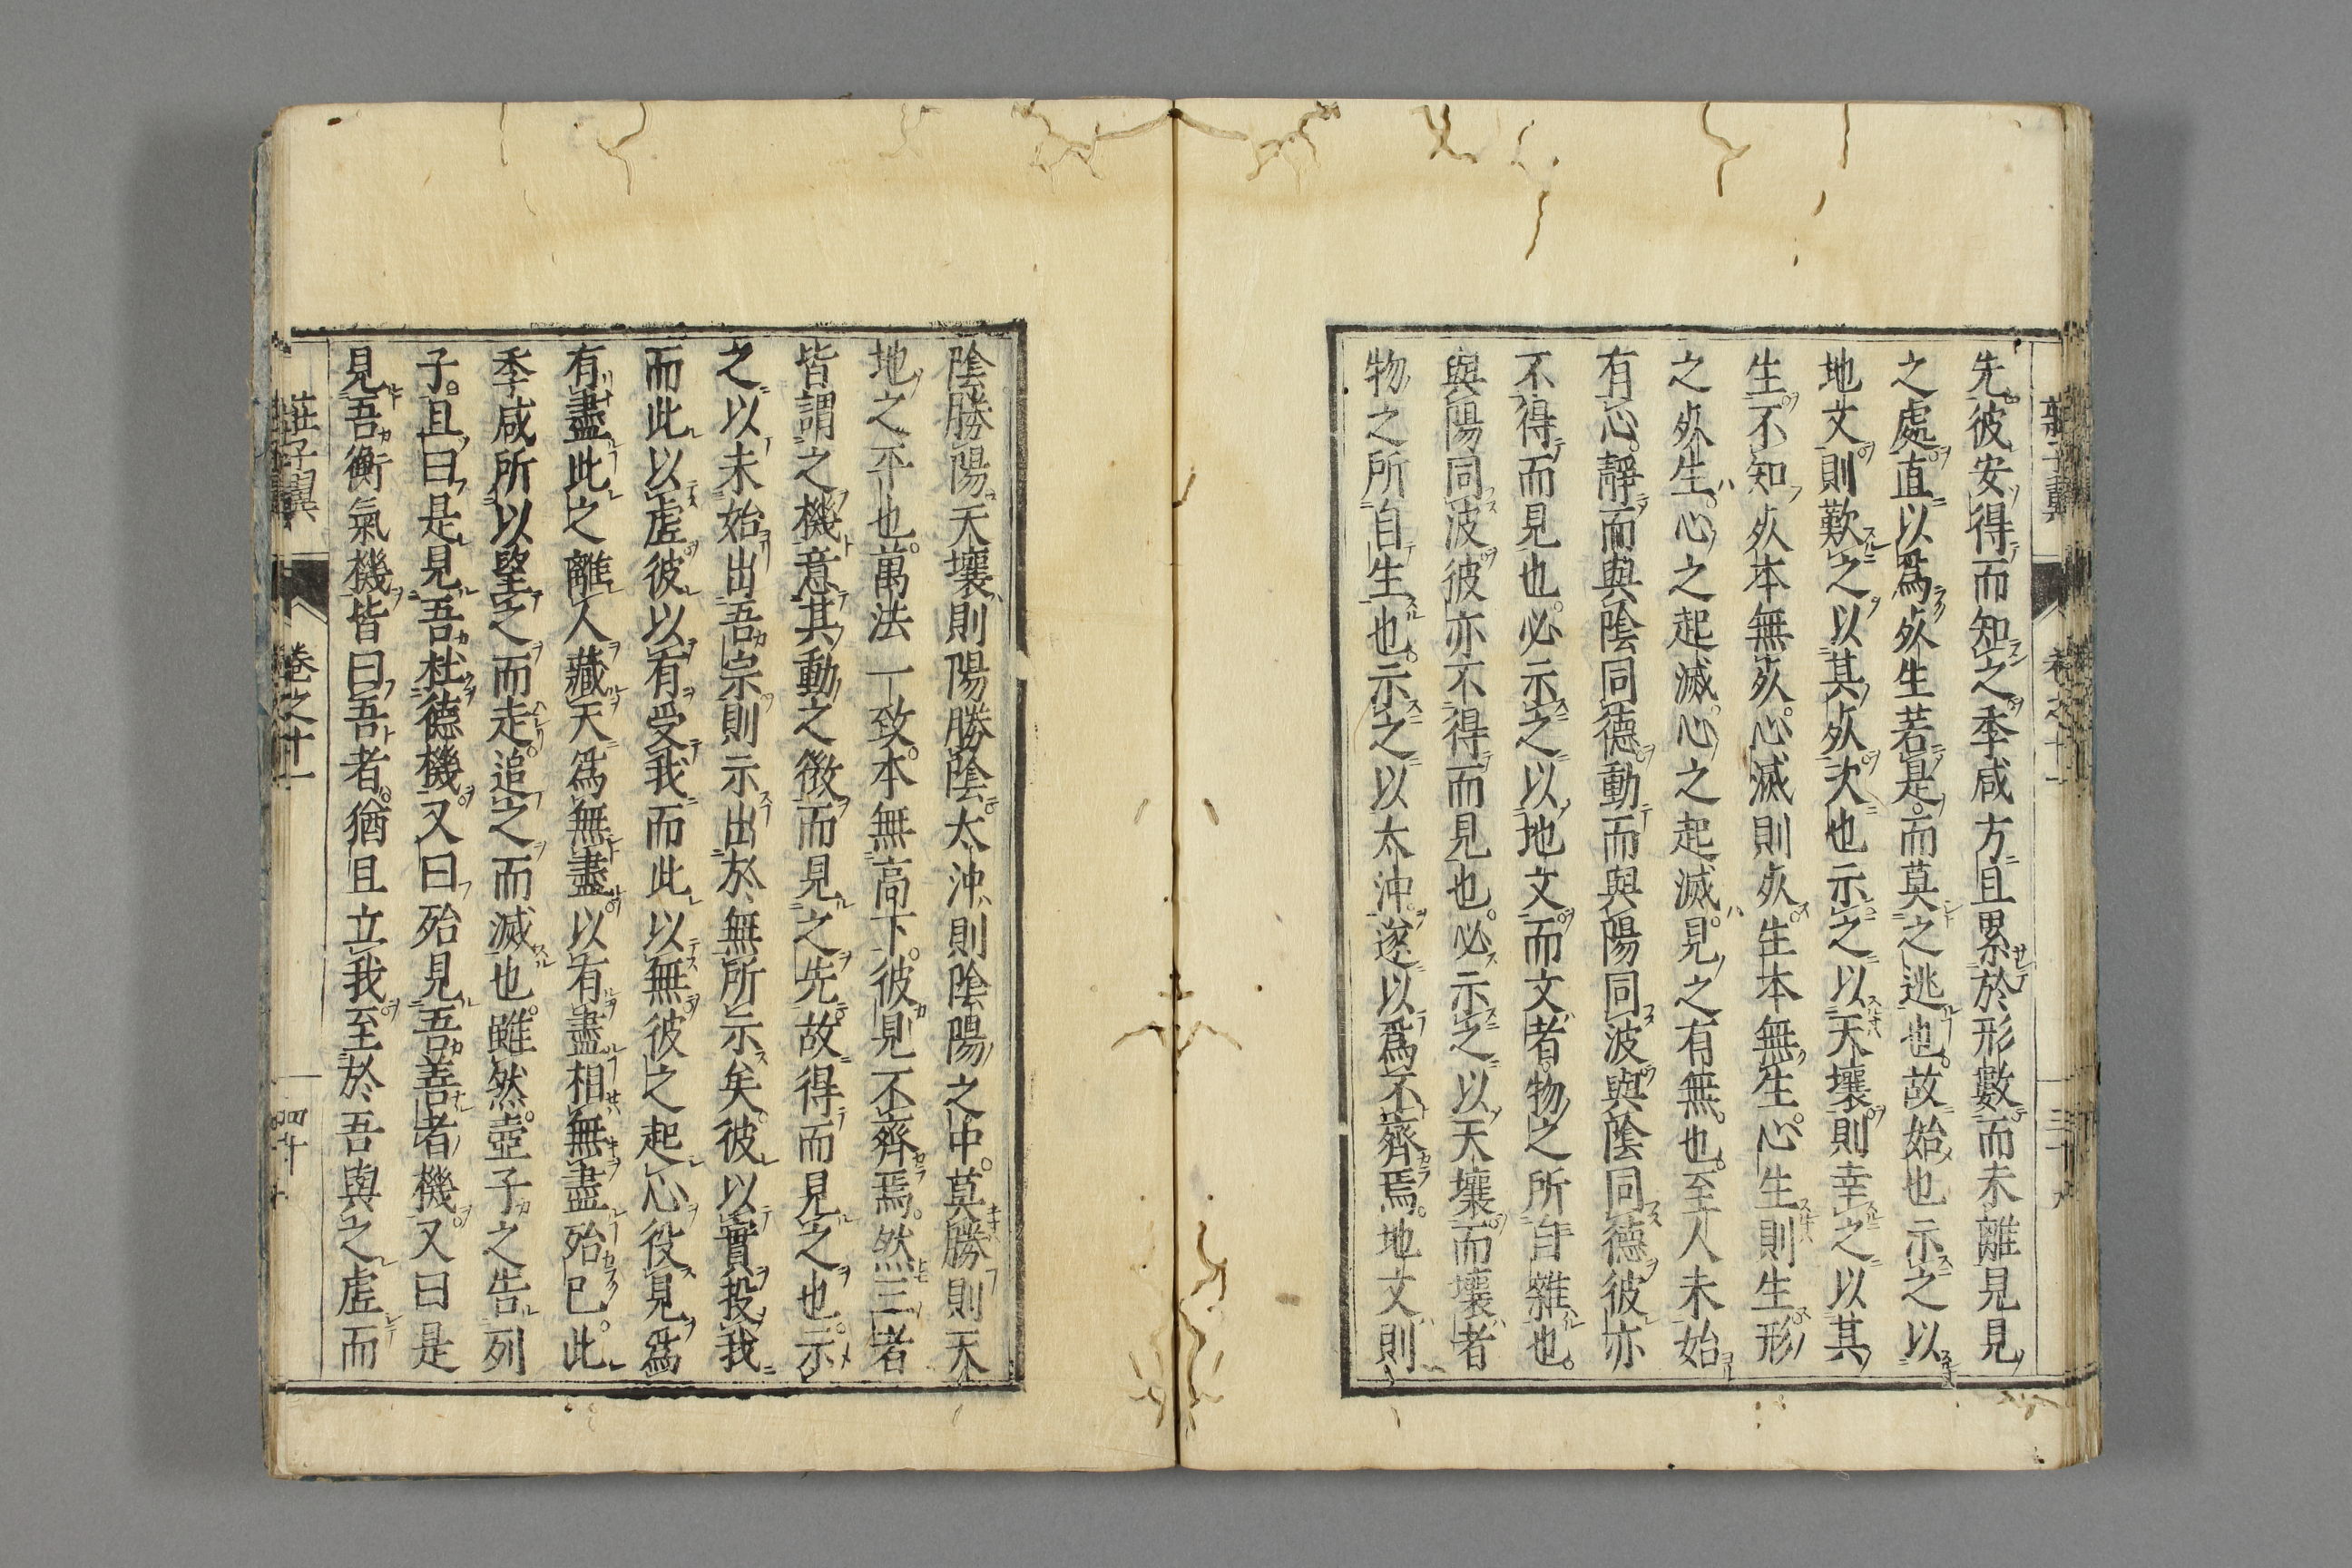 先彼安得而知之季咸方且累於形數而未離見見
之處直以爲死生若是而莫之逃也故始也示之以
地文則歎之以其死次也示之以天壤則幸之以其
生不知死本無死心滅則死生本無生心生則生形
之死生心之起滅心之起滅見之有無也至人未始
有心靜而與陰同德動而與陽同波與陰同德彼亦
不得而見也必示之以地文而文者物之所自雜也
與陽同波彼亦不得而見也必示之以天壤而壤者
物之所自生也示之以太沖遂以爲不齊焉地文則
陰勝陽天壤則陽勝陰太沖則陰陽之中莫勝則天
地之平也萬法一致本無高下彼見不齊焉然三者
皆謂之機意其動之徵而見之先故得而見之也示
之以未始出吾宗則示出於無所示矣彼以實投我
而此以虛彼以有受我而此以無彼之起心役見爲
有盡此之離人藏天爲無盡以有盡相無盡殆已此
季咸所以望之而走追之而滅也雖然壺子之告列
子且曰是見吾杜德機又曰殆見吾善者機又曰是
見吾衡氣機皆曰吾者猶且立我至於吾與之虛而
莊子翼 卷之十一 四十